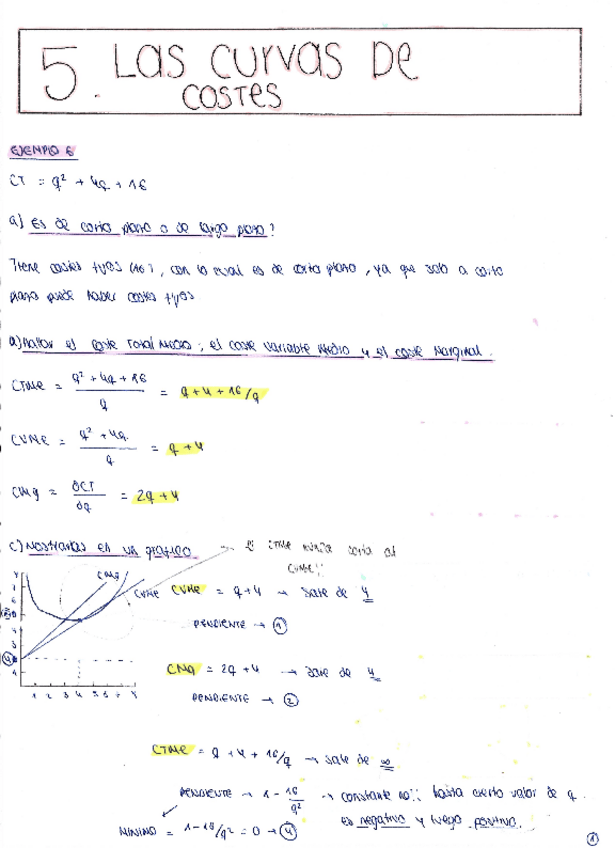 5. LAS CURVAS DE
COSTES
EJEMPLO 6
CT = q² + 4q + 16
a) Es de corto plazo o de largo plazo?
Tiene costes fijos (16), con lo cual es de corto plazo, ya que solo a corto
plazo puede haber costes fijos
a) Hallar el coste total medio, el coste variable medio y el coste marginal.
CTMe = q² + 4q + 16 / q = q + 4 + 16/q
CVMe = q² + 4q / q = q + 4
CMg = ∂CT / ∂q = 2q + 4
c) Mostrarlas en un gráfico → El CTMe nunca corta al
CVMe!!
CMg
CVMe
CVMe = q + 4 → sale de 4
PENDIENTE → 1
CMg = 2q + 4 → sale de 4
PENDIENTE → 2
CTMe = q + 4 + 16/q → sale de ∞
PENDIENTE → 1 - 16/q² → constante no!! hasta cierto valor de q
es negativo y luego positivo.
MINIMO = 1 - 16/q² = 0 → 4
1